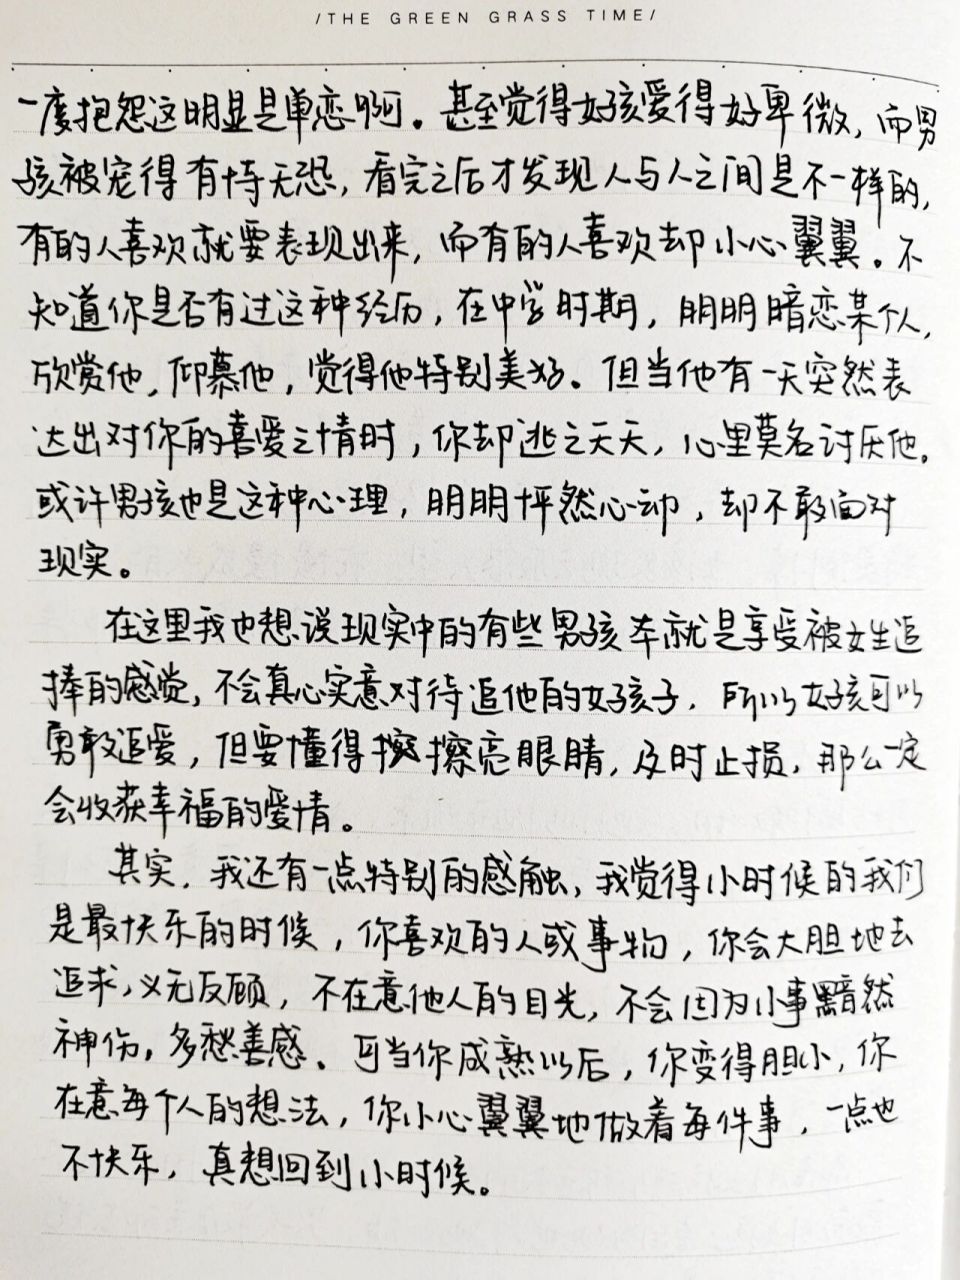 /THE GREEN GRASS TIME/
一度抱怨这明显是单恋啊。甚至觉得女孩爱得好卑微，而男
孩被宠得有恃无恐，看完之后才发现人与人之间是不一样的，
有的人喜欢就要表现出来，而有的人喜欢却小心翼翼。不
知道你是否有过这种经历，在中学时期，明明暗恋某个人，
欣赏他，仰慕他，觉得他特别美好。但当他有一天突然表
达出对你的喜爱之情时，你却逃之夭夭，心里莫名讨厌他。
或许男孩也是这种心理，明明怦然心动，却不敢面对
现实。
在这里我也想说现实中的有些男孩本就是享受被女生追
捧的感觉，不会真心实意对待追他的女孩子，所以女孩可以
勇敢追爱，但要懂得擦擦亮眼睛，及时止损，那么一定
会收获幸福的爱情。
其实，我还有一点特别的感触，我觉得小时候的我们
是最快乐的时候，你喜欢的人或事物，你会大胆地去
追求，义无反顾，不在意他人的目光，不会因为小事黯然
神伤，多愁善感、可当你成熟以后，你变得胆小，你
在意每个人的想法，你小心翼翼地做着每件事，一点也
不快乐，真想回到小时候。